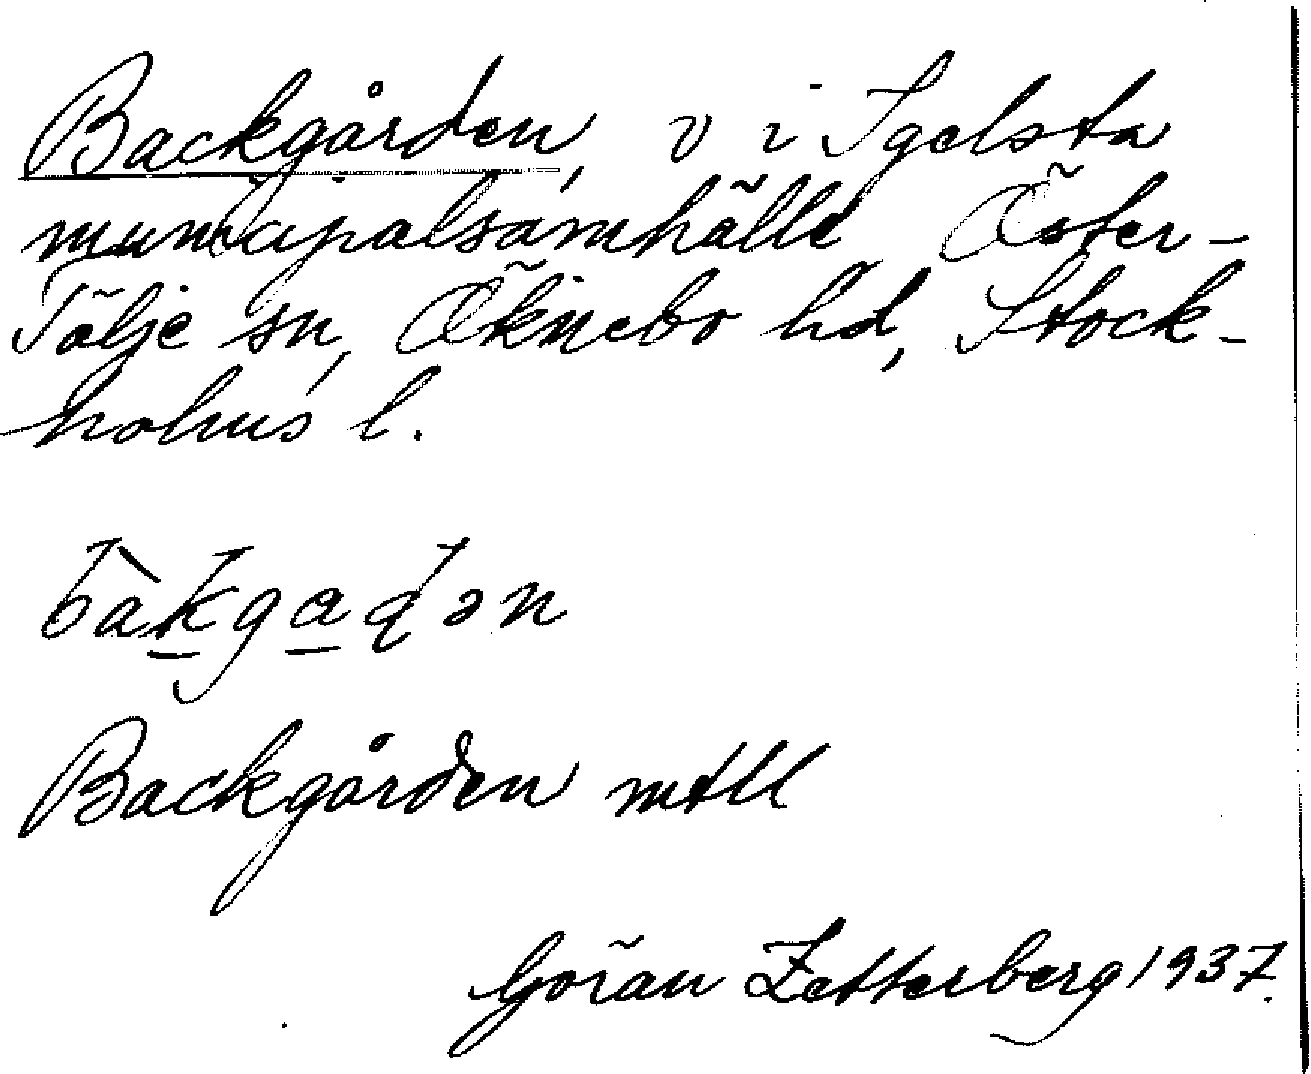 Backgården, v i Igelsta
municipalsamhälle Öster-
Tälje sn, Öknebo hd, Stock-
holms l.
bàk̲ga̲ɖən
Backgården mtll
Göran Zetterberg 1937.